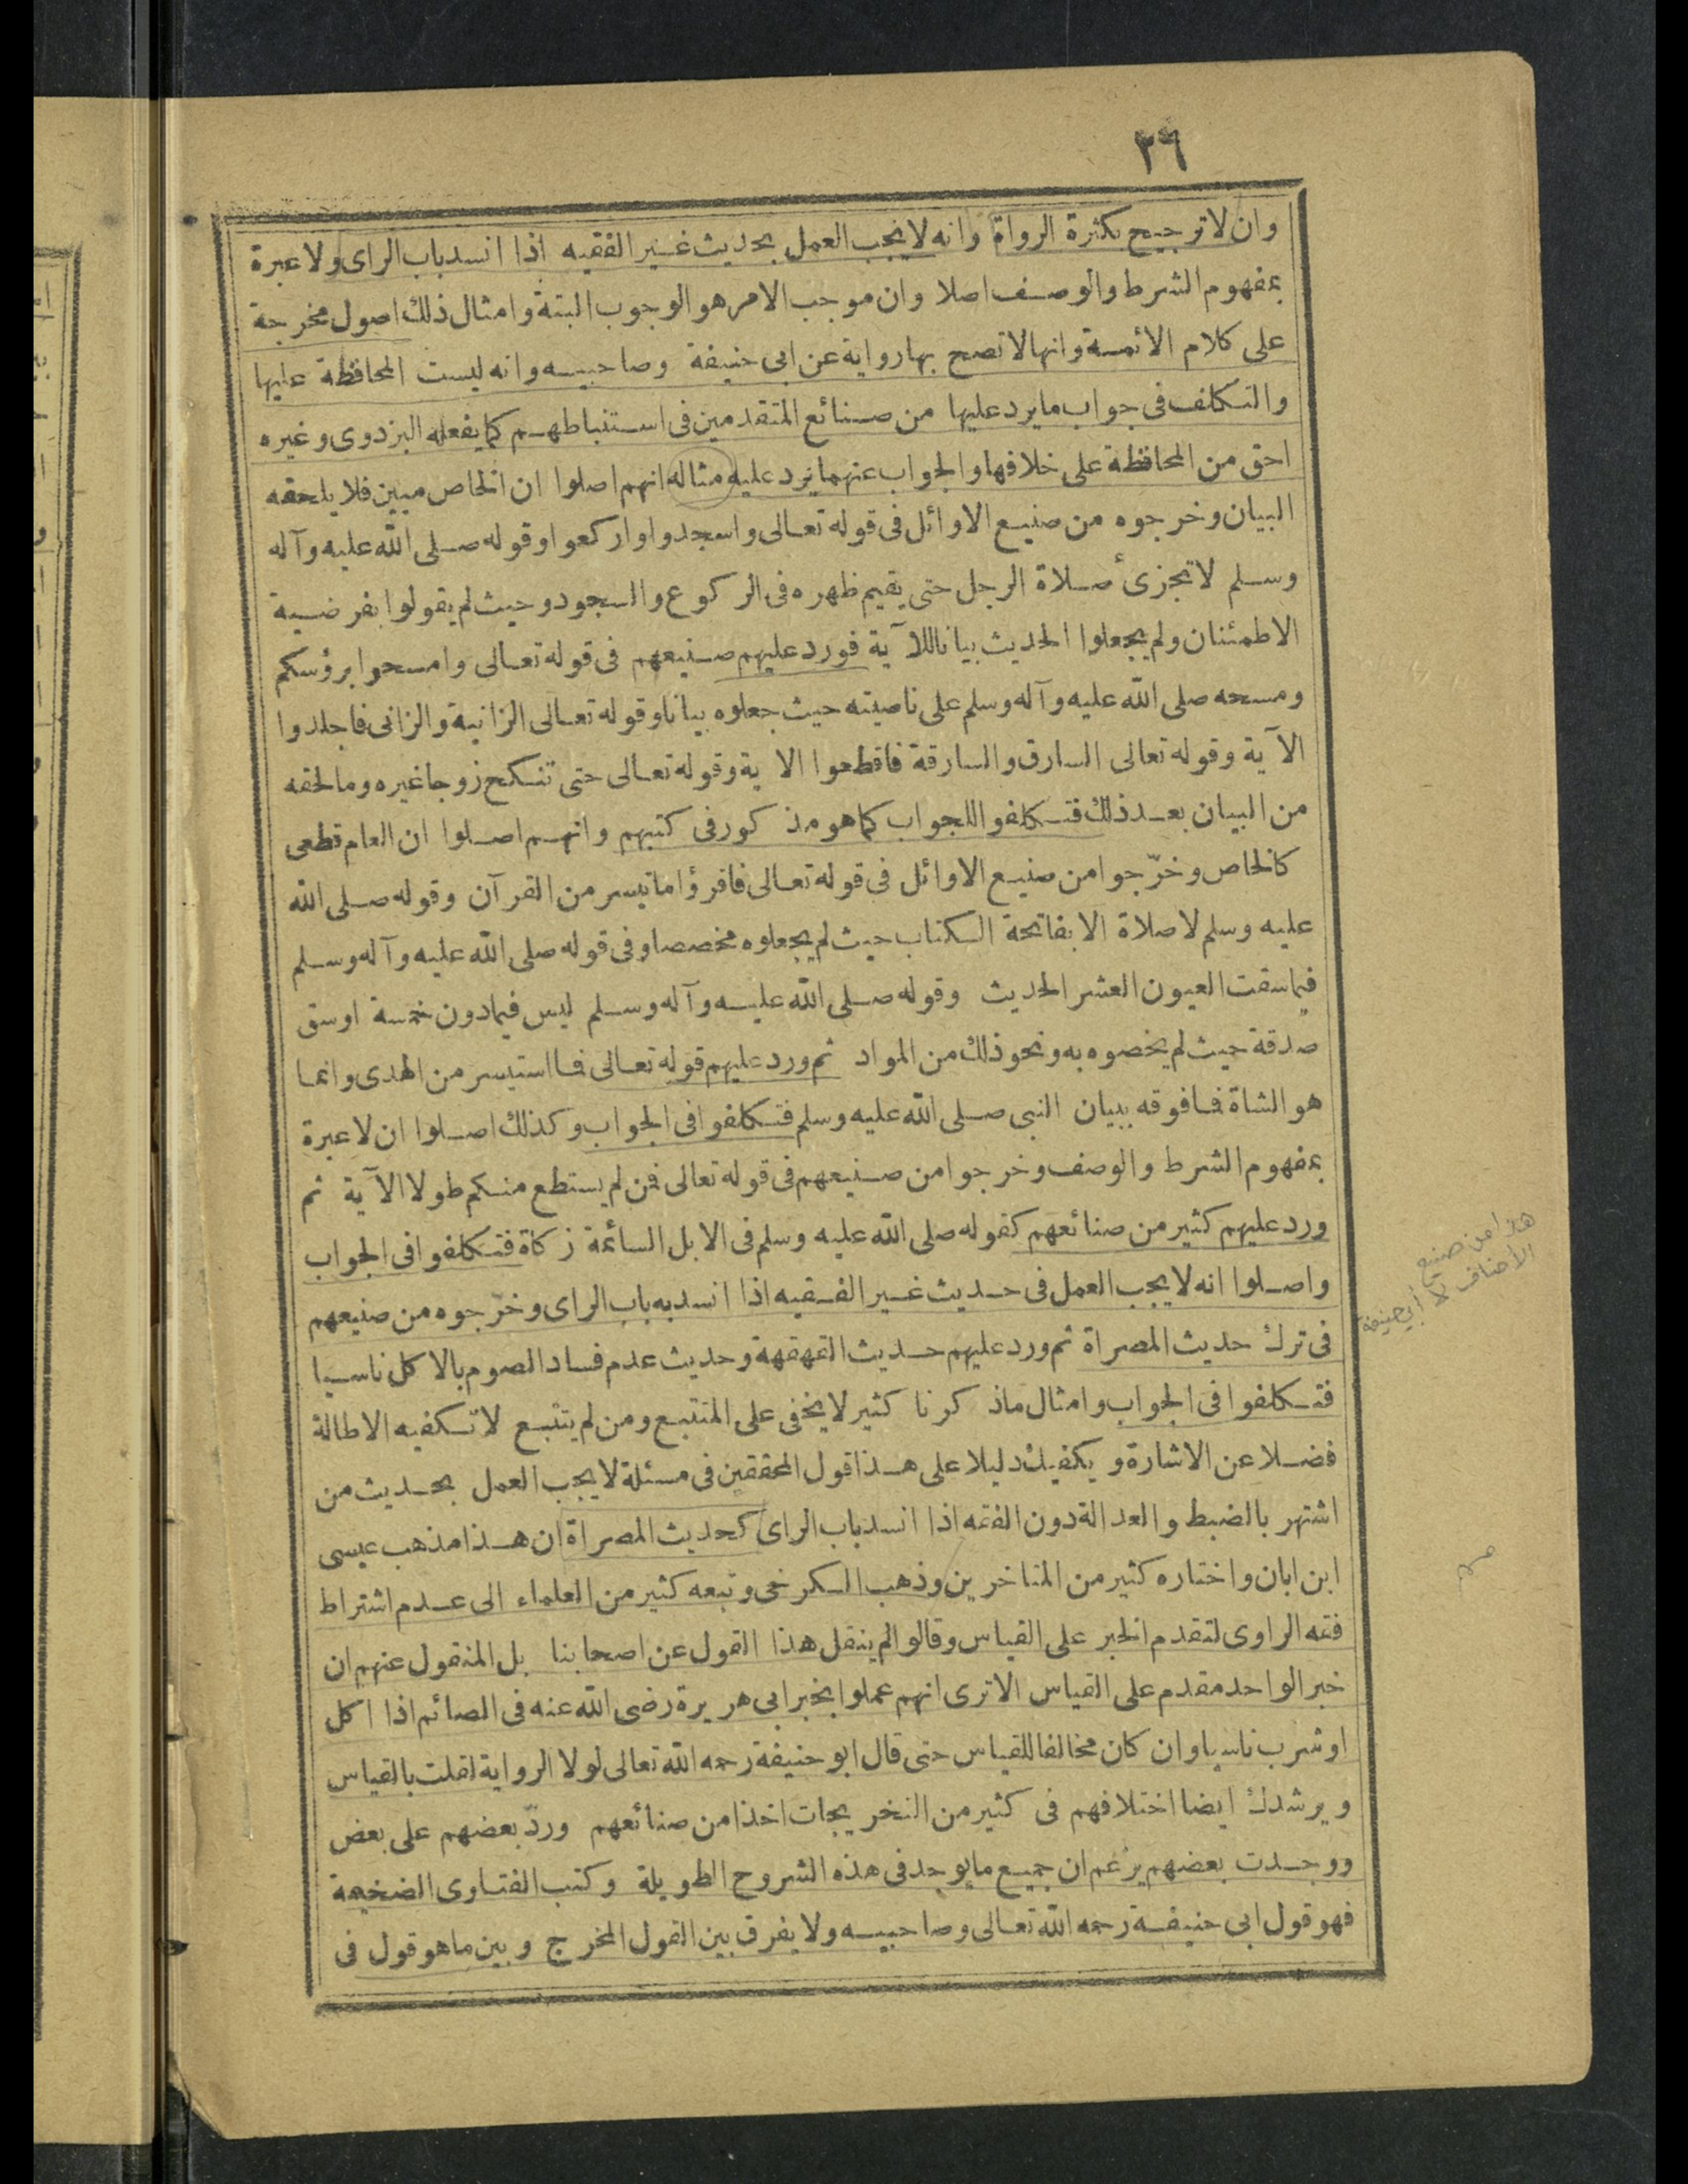 ٣٦
وان لا ترجيح بكثرة الرواة وانه لا يجب العمل بحديث غير الفقيه اذا انسد باب الراى ولا عبرة
بمفهوم الشرط والوصف اصلا وان موجب الامر هو الوجوب البتة وامثال ذلك اصول مخرجة
على كلام الأئمة وانها لا تصح بها رواية عن ابى حنيفة وصاحبيه وانه ليست المحافظة عليها
والتكلف فى جواب ما يرد عليها من صنائع المتقدمين فى استنباطهم كما يفعله البزدوى وغيره
احق من المحافظة على خلافها والجواب عنهما يرد عليه مثاله انهم اصلوا ان الخاص مبين فلا يلحقه
البيان وخرجوه من صنيع الاوائل فى قوله تعالى واسجدوا واركعوا وقوله صلى الله عليه وآله
وسلم لا تجزئ صلاة الرجل حتى يقيم ظهره فى الركوع والسجود وحيث لم يقولوا بفرضية
الاطمئنان ولم يجعلوا الحديث بيانا للآية فورد عليهم صنيعهم فى قوله تعالى وامسحوا برؤسكم
ومسحه صلى الله عليه وآله وسلم على ناصيته حيث جعلوه بيانا وقوله تعالى الزانية والزانى فاجلدوا
الآية وقوله تعالى السارق والسارقة فاقطعوا الاية وقوله تعالى حتى تنكح زوجا غيره وما لحقه
من البيان بعد ذلك فتكلفوا للجواب كما هو مذكور فى كتبهم وانهم اصلوا ان العام قطعى
كالخاص وخرّجوا من صنيع الاوائل فى قوله تعالى فاقرؤا ما تيسر من القرآن وقوله صلى الله
عليه وسلم لا صلاة الا بفاتحة الكتاب حيث لم يجعلوه مخصصا وفى قوله صلى الله عليه وآله وسلم
فيما سقت العيون العشر الحديث وقوله صلى الله عليه وآله وسلم ليس فيما دون خمسة اوسق
صدقة حيث لم يخصوه به ونحو ذلك من المواد ثم ورد عليهم قوله تعالى فما استيسر من الهدى وانما
هو الشاة فما فوقه ببيان النبى صلى الله عليه وسلم فتكلفوا فى الجواب وكذلك اصلوا ان لا عبرة
بمفهوم الشرط والوصف وخرجوا من صنيعهم فى قوله تعالى فمن لم يستطع منكم طولا الآية ثم
ورد عليهم كثير من صنائعهم كقوله صلى الله عليه وسلم فى الابل السائمة زكاة فتكلفوا فى الجواب
واصلوا انه لا يجب العمل فى حديث غير الفقيه اذا انسد به باب الراى وخرّجوه من صنيعهم
فى ترك حديث المصراة ثم ورد عليهم حديث القهقهة وحديث عدم فساد الصوم بالاكل ناسيا
فتكلفوا فى الجواب وامثال ما ذكرنا كثير لا يخفى على المتتبع ومن لم يتتبع لا تكفيه الاطالة
فضلا عن الاشارة ويكفيك دليلا على هذا قول المحققين فى مسئلة لا يجب العمل بحديث من
اشتهر بالضبط والعدالة دون الفقه اذا انسد باب الراى كحديث المصراة ان هذا مذهب عيسى
ابن ابان واختاره كثير من المتاخرين وذهب الكرخى وتبعه كثير من العلماء الى عدم اشتراط
فقه الراوى لتقدم الخبر على القياس وقالوا لم ينقل هذا القول عن اصحابنا بل المنقول عنهم ان
خبر الواحد مقدم على القياس الا ترى انهم عملوا بخبر ابى هريرة رضى الله عنه فى الصائم اذا اكل
او شرب ناسيا وان كان مخالفا للقياس حتى قال ابو حنيفة رحمه الله تعالى لولا الرواية لقلت بالقياس
ويرشدك ايضا اختلافهم فى كثير من التخريجات اخذا من صنائعهم وردّ بعضهم على بعض
ووجدت بعضهم يزعم ان جميع ما يوجد فى هذه الشروح الطويلة وكتب الفتاوى الضخيمة
فهو قول ابى حنيفة رحمه الله تعالى وصاحبيه ولا يفرق بين القول المخرج وبين ما هو قول فى
هذا من صنيع
الاحناف لا ابي حنيفة